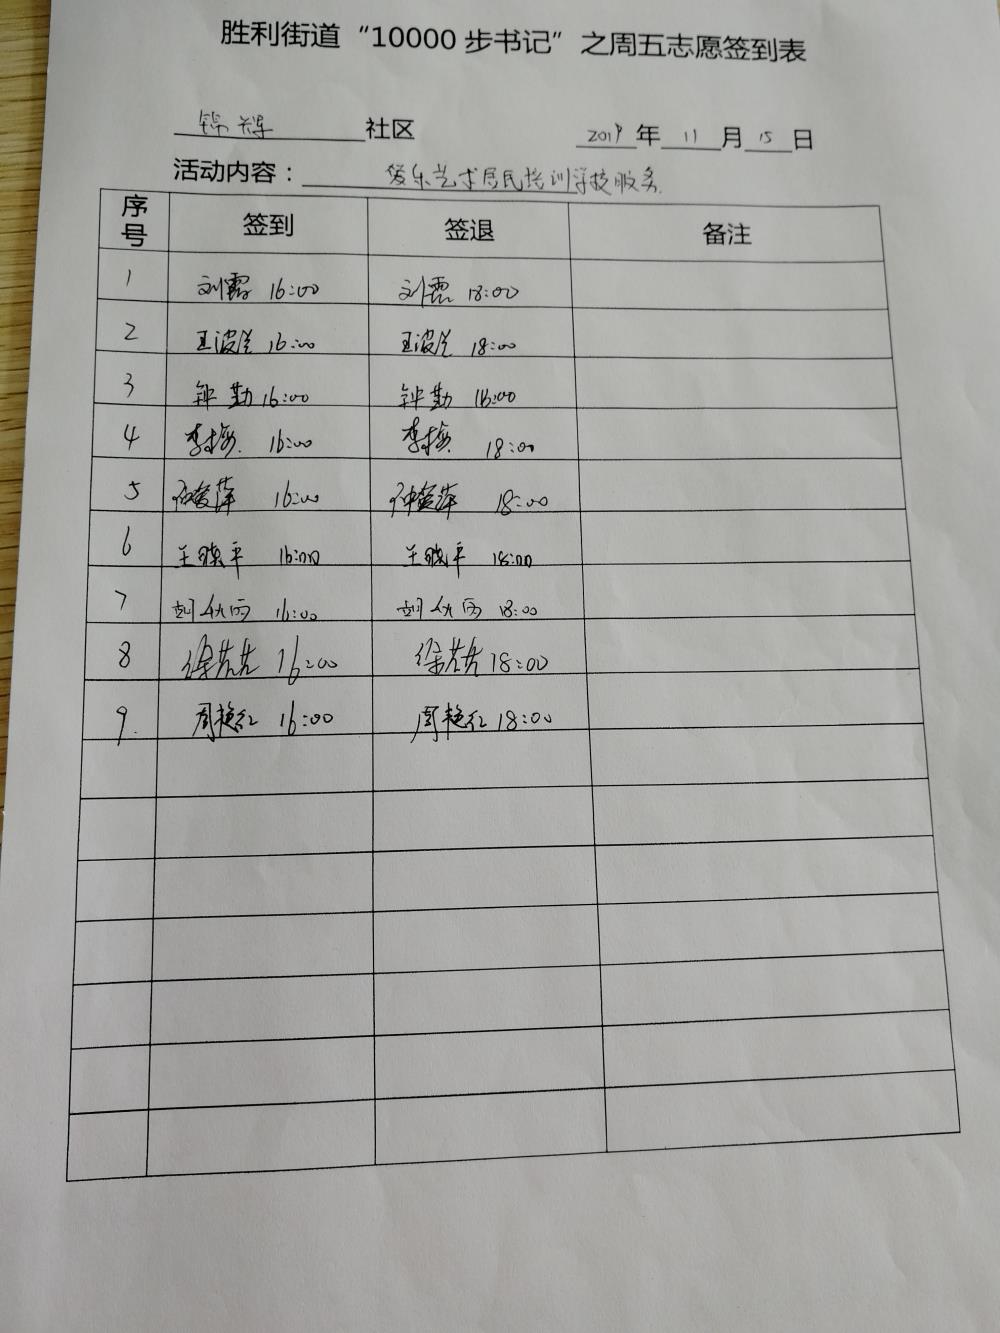 胜利街道“10000步书记”之周五志愿签到表
锦辉 社区 2019年 11 月 15 日
活动内容： 爱乐艺术居民培训学校服务
序号 签到 签退 备注
1 刘霞 16:00 刘霞 18:00
2 王波兰 16:00 王波兰 18:00
3 钟勤 16:00 钟勤 18:00
4 李梅 16:00 李梅 18:00
5 16:00 18:00
6 王晓平 16:00 王晓平 18:00
7 16:00 18:00
8 徐芳芳 16:00 徐芳芳 18:00
9. 周艳红 16:00 周艳红 18:00